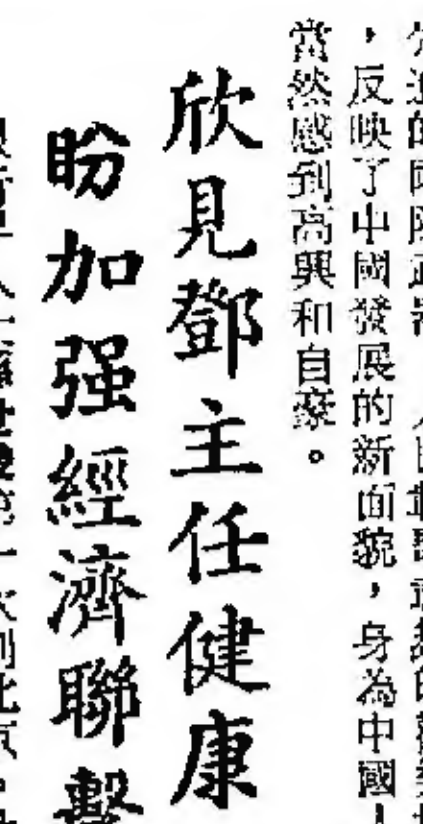 ，反映了中國發展的新面貌，身為中國
當然感到高興和自豪。
欣見鄧主任健康
盼加强經濟聯繫